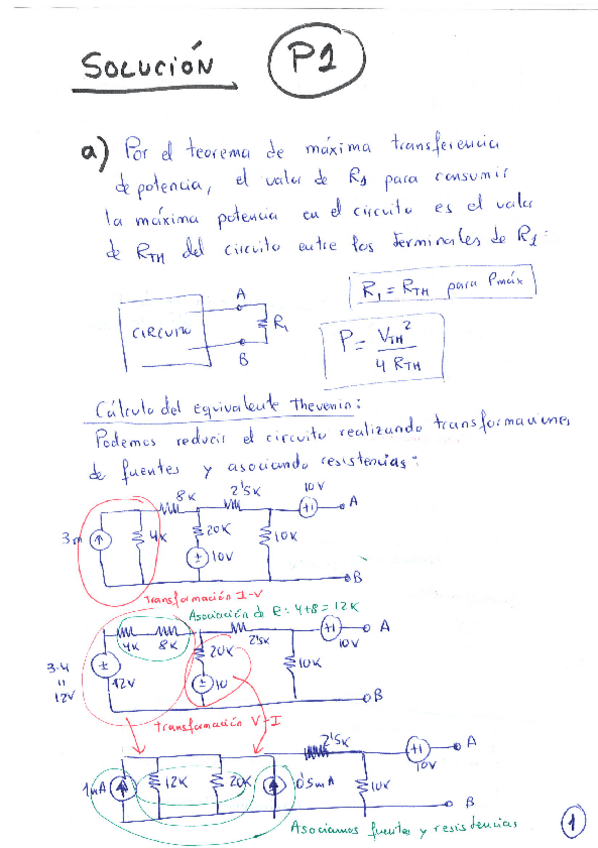 SOLUCIÓN P1
a) Por el teorema de máxima transferencia
de potencia, el valor de R1 para consumir
la máxima potencia en el circuito es el valor
de RTH del circuito entre los terminales de R1:
R1 = RTH para Pmáx
A
CIRCUITO
R1
B
P = VTH² / 4 RTH
Cálculo del equivalente Thevenin:
Podemos reducir el circuito realizando transformaciones
de fuentes y asociando resistencias:
8K 2'5K 10V
A
3m 4K 20K 10K
10V
B
Transformación I-V
Asociación de R: 4+8 = 12K
A
4K 8K 20K 2'5K 10V
3·4
"
12V
12V 10 10K
B
Transformación V-I
2'5K A
10V
1mA 12K 20K 0'5mA 10K
B
Asociamos fuentes y resistencias
1